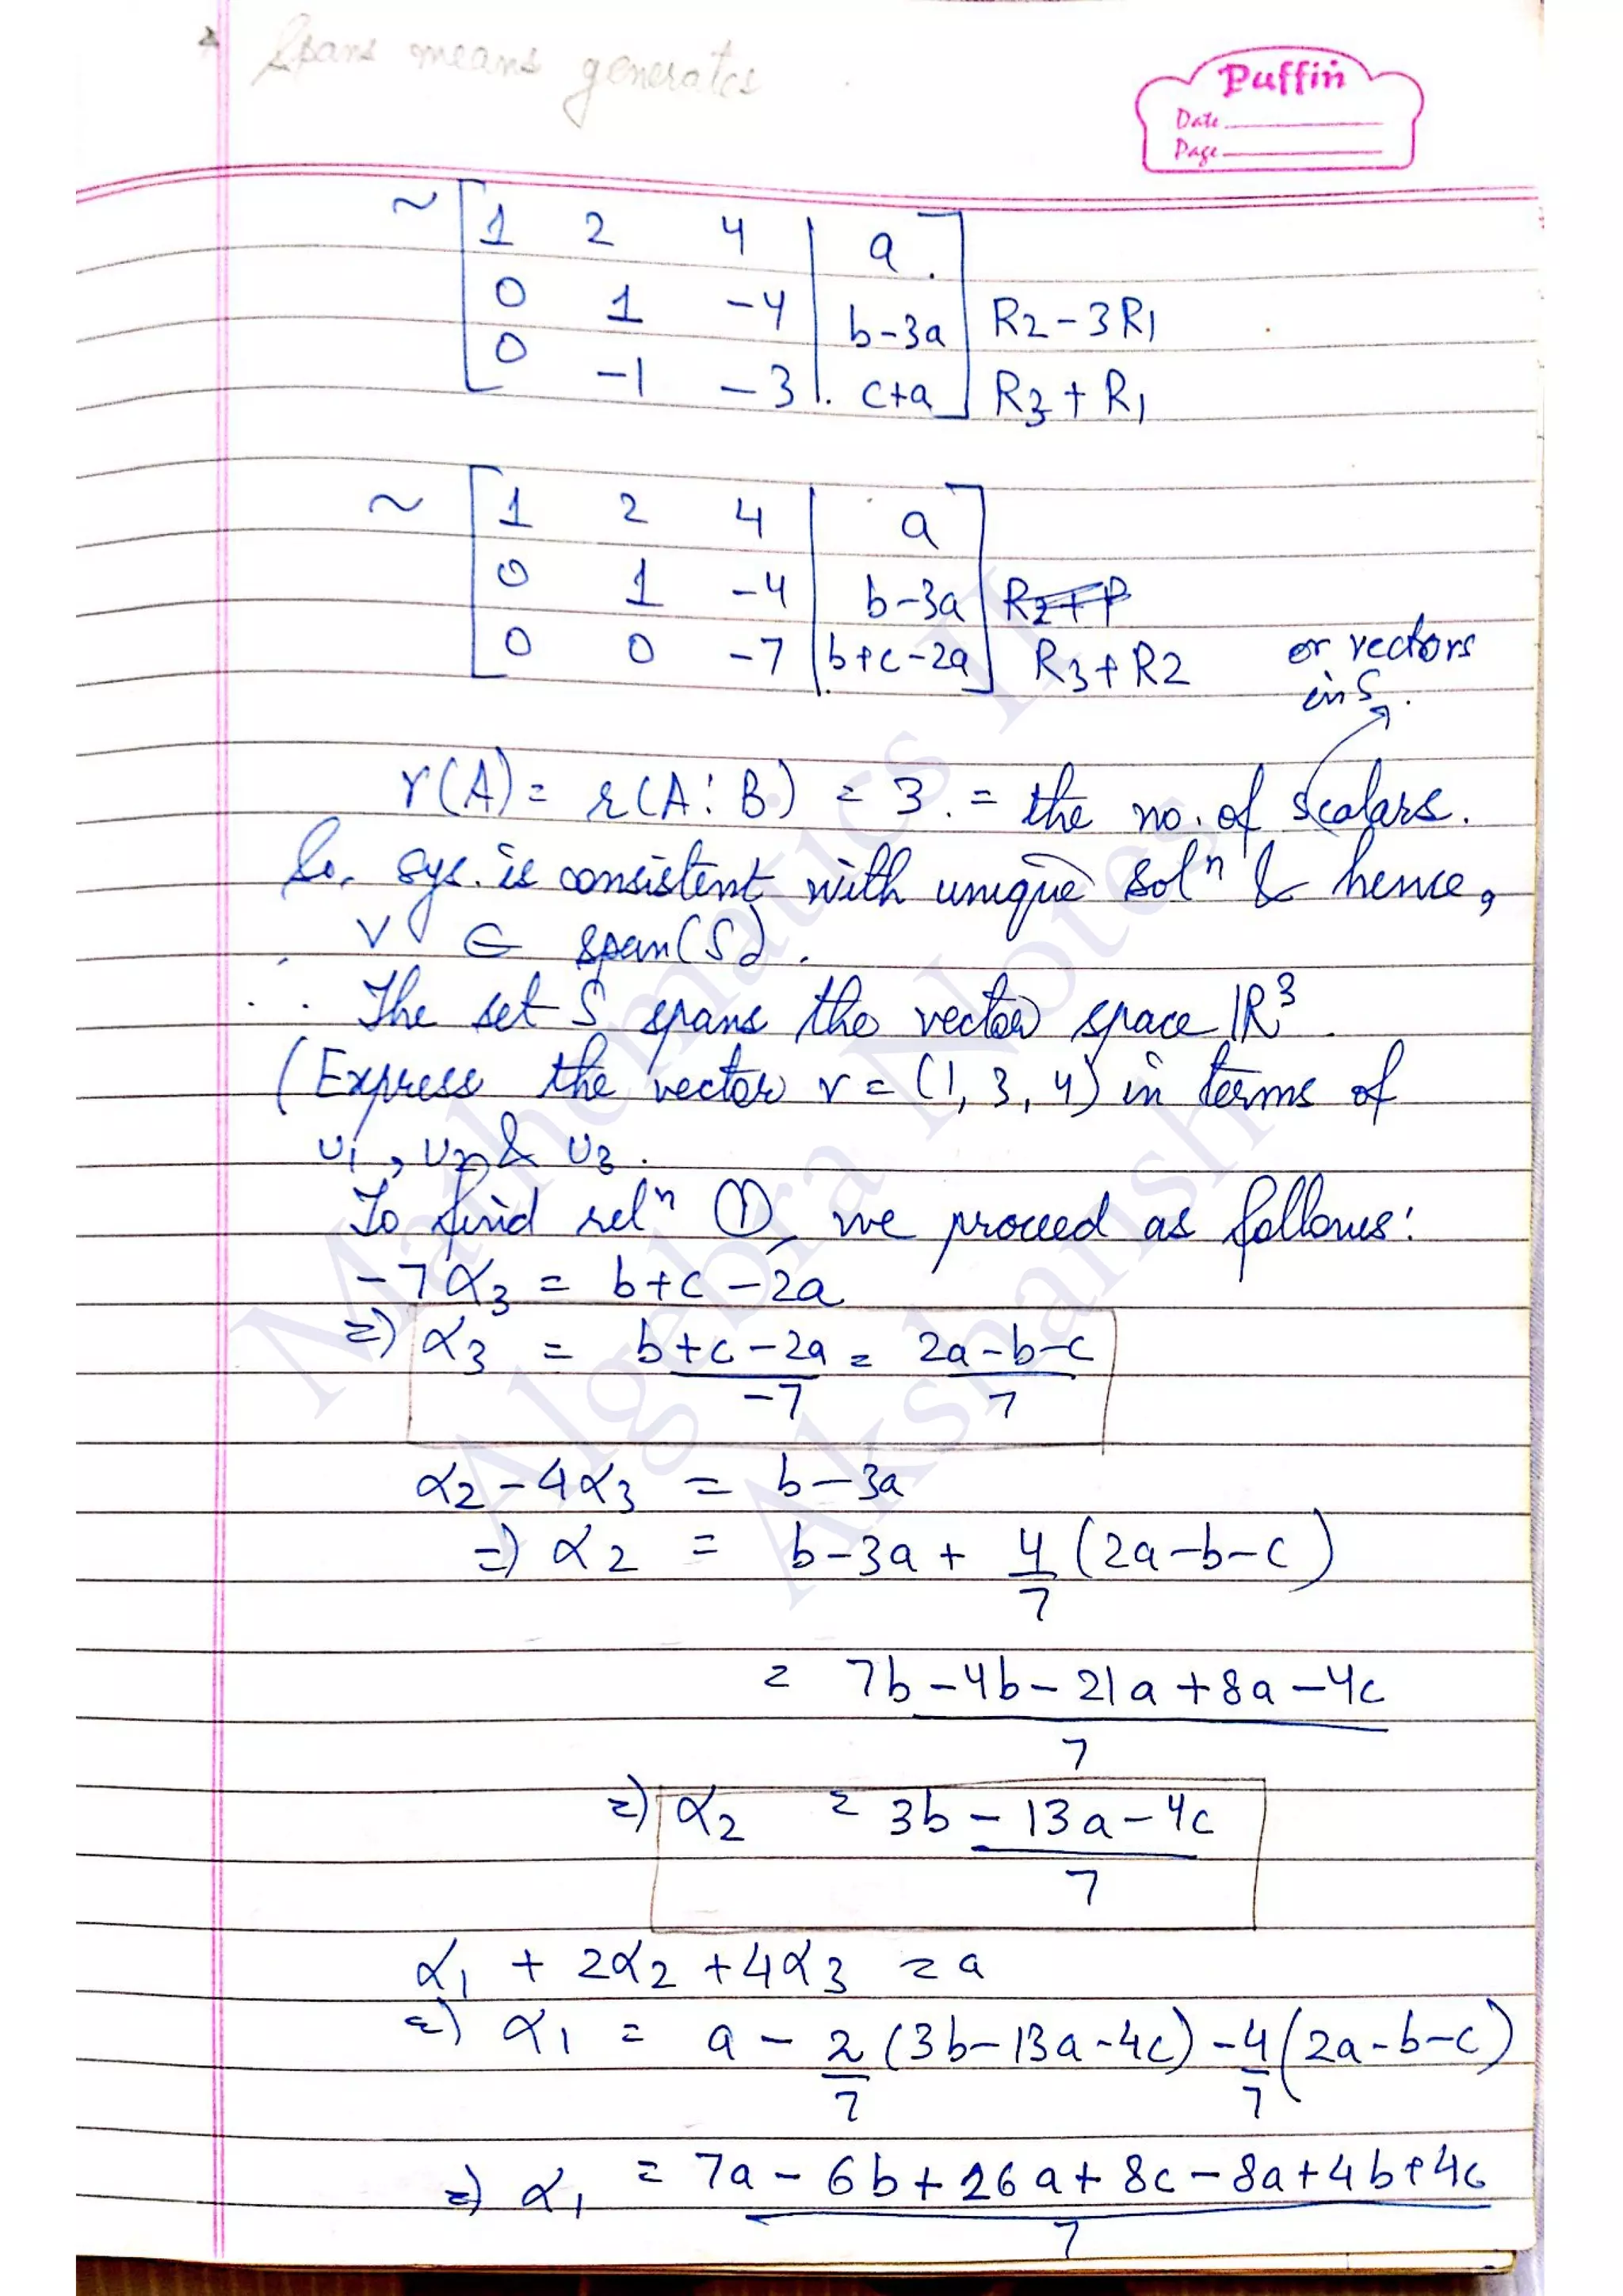 * Spans means generates
Puffin
Date
Page
~ [ 1 2 4 | a ]
[ 0 1 -4 | b-3a ] R2-3R1
[ 0 -1 -3 | c+a ] R3+R1
~ [ 1 2 4 | a ]
[ 0 1 -4 | b-3a ]
[ 0 0 -7 | b+c-2a ] R3+R2
or vectors
in S.
r(A) = r(A:B) = 3. = the no. of scalars.
So, sys. is consistent with unique solⁿ & hence,
V ∈ span(S).
∴ The set S spans the vector space ℝ³.
(Express the vector v = (1, 3, 4) in terms of
u1, u2 & u3.
To find relⁿ ①, we proceed as follows:
-7α3 = b+c-2a
=) α3 = (b+c-2a)/-7 = (2a-b-c)/7
α2-4α3 = b-3a
=) α2 = b-3a + 4/7 (2a-b-c)
= (7b-4b-21a+8a-4c)/7
=) α2 = (3b-13a-4c)/7
α1 + 2α2 + 4α3 = a
=) α1 = a - 2/7 (3b-13a-4c) - 4/7 (2a-b-c)
=) α1 = (7a-6b+26a+8c-8a+4b+4c)/7
Mathematics II
Algebra Notes
Akshansh